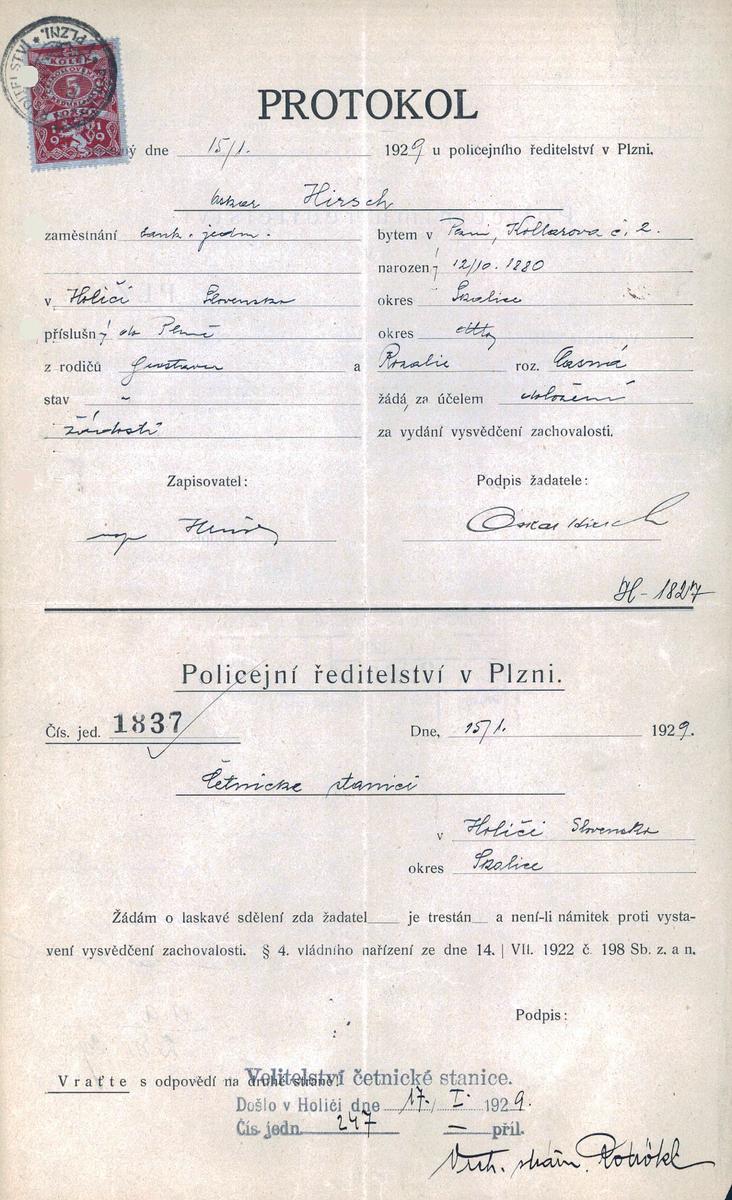 PROTOKOL
ný dne 15/1. 1929 u policejního ředitelství v Plzni.
Oskar Hirsch
zaměstnání bank. jedn. bytem v Plzni, Kollárova č. 2.
narozen ý 12/10. 1880
v Holíči Slovensko okres Skalice
příslušn ý do Plzně okres
z rodičů Gustava a Rozalie roz.
stav - žádá, za účelem doložení
žádosti za vydání vysvědčení zachovalosti.
Zapisovatel: Podpis žadatele:
Oskar Hirsch
H-1827
Policejní ředitelství v Plzni.
Čís. jed. 1837 Dne, 15/1. 1929.
Četnické stanici
v Holíči Slovensko
okres Skalice
Žádám o laskavé sdělení zda žadatel je trestán a není-li námitek proti vysta-
vení vysvědčení zachovalosti. § 4. vládního nařízení ze dne 14. | VII. 1922 č. 198 Sb. z. a n.
Podpis:
Vraťte s odpovědí na druhé straně!
Velitelství četnické stanice.
Došlo v Holíči dne 17. I. 1929.
Čís. jedn. 247 — příl.
Vrch. strážm.